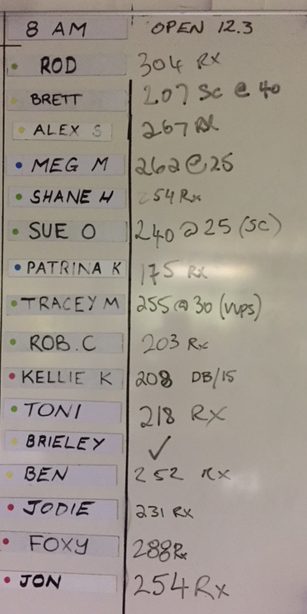 8 AM OPEN 12.3
ROD 304 Rx
BRETT 207 SC @ 40
ALEX S 267 Rx
MEG M 262 @ 25
SHANE H 254 Rx
SUE O 240 @ 25 (SC)
PATRINA K 175 RX
TRACEY M 255 @ 30 (VVPS)
ROB.C 203 Rx
KELLIE K 208 DB/15
TONI 218 RX
BRIELEY ✓
BEN 252 RX
JODIE 231 RX
FOXY 288 Rx
JON 254 Rx